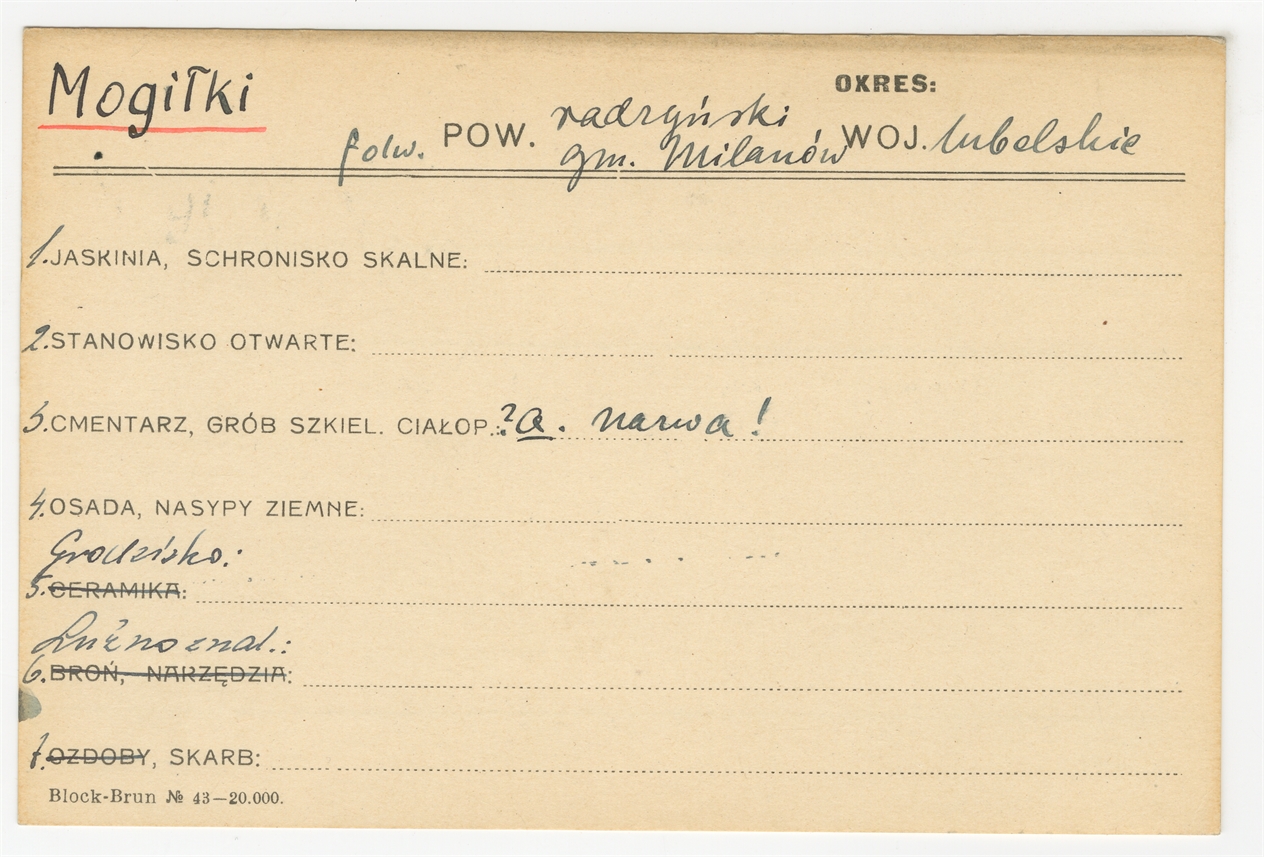 Mogiłki
OKRES:
folw. POW. radzyński WOJ. lubelskie
gm. Milanów
1. JASKINIA, SCHRONISKO SKALNE:
2. STANOWISKO OTWARTE:
3. CMENTARZ, GRÓB SZKIEL. CIAŁOP.: ? a. nazwa!
4. OSADA, NASYPY ZIEMNE:
Grodzisko:
5. CERAMIKA:
Luźno znal.:
6. BROŃ, NARZĘDZIA:
7. OZDOBY, SKARB:
Block-Brun № 43—20.000.